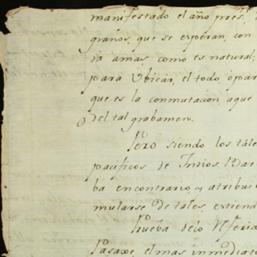 manifestado el año pres.
granos, que se esperan, con
ra amas, como es natural;
para Vbicar, el todo ópar
que es la conmutacion aque
del tal grabamen.
Pero siendo los tále
pacificos de Indios Bar
ba encontrario, y atribu
mularse de tales, extiend
Prueba delo Referi
Pasaxe el mas inmediato